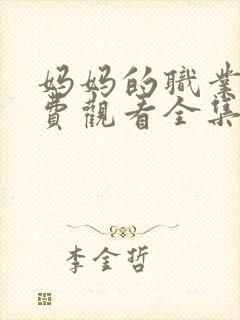 妈妈的職業
費觀看全集
李金哲